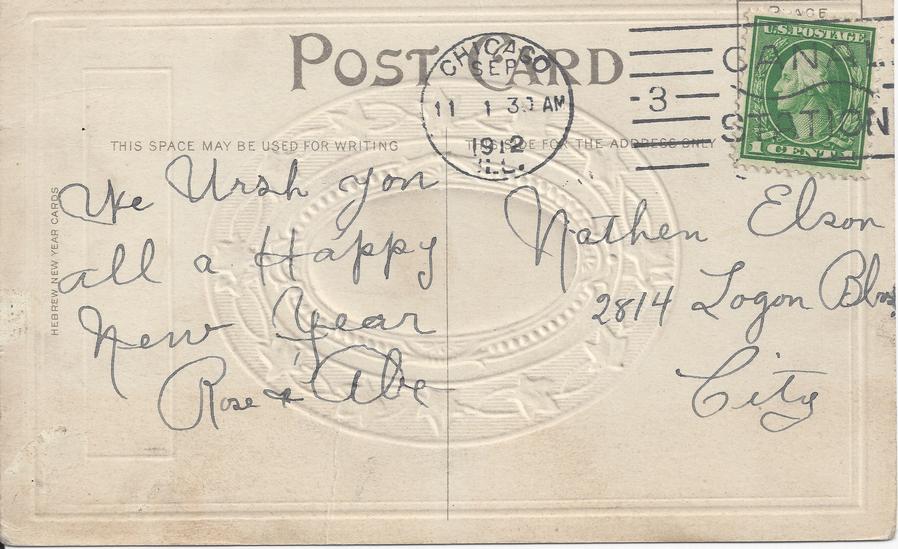 POST CARD
CHICAGO
SEP
11 1 30 AM
1912
ILL.
3
CANAL
STATION
U.S. POSTAGE
1 CENT 1
THIS SPACE MAY BE USED FOR WRITING
THIS SIDE FOR THE ADDRESS ONLY
HEBREW NEW YEAR CARDS
We Wish you
all a Happy
New Year
Rose & Abe
Nathen Elson
2814 Logon Blvd
City